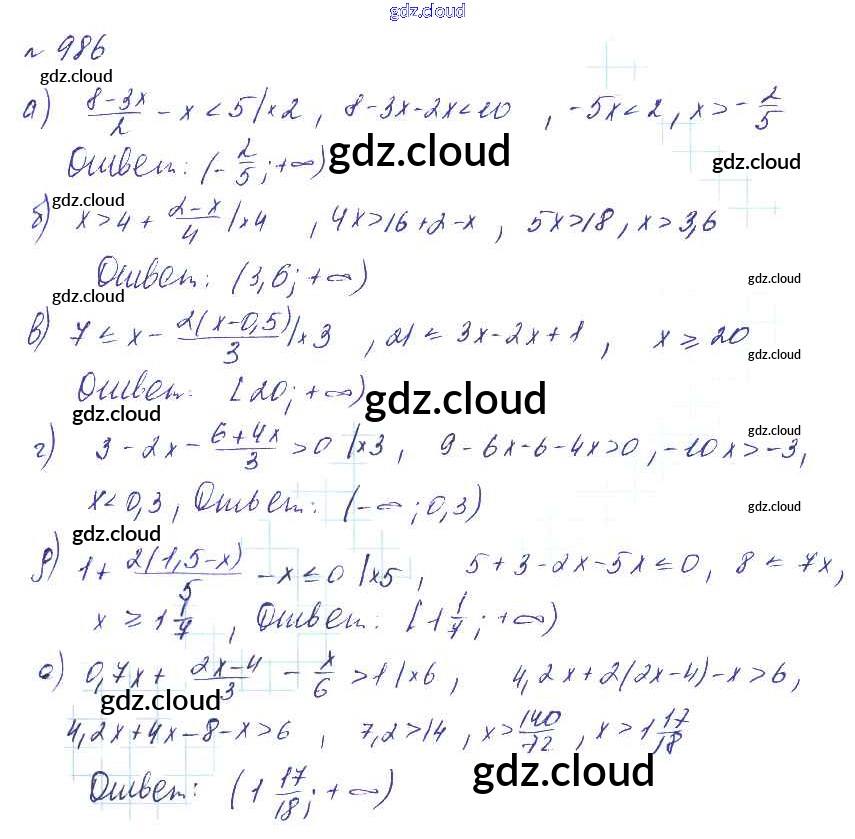 gdz.cloud
№ 986
gdz.cloud
а) (8-3x)/2 - x < 5 | ×2, 8-3x-2x<10, -5x<2, x>-2/5
Ответ: (-2/5; +∞)
gdz.cloud
gdz.cloud
gdz.cloud
б) x>4 + (2-x)/4 | ×4, 4x>16+2-x, 5x>18, x>3,6
Ответ: (3,6; +∞)
gdz.cloud
gdz.cloud
в) 7 ≤ x - 2(x-0,5)/3 | ×3, 21 ≤ 3x-2x+1, x ≥ 20
gdz.cloud
Ответ: [20; +∞)
gdz.cloud
gdz.cloud
gdz.cloud
г) 3-2x - (6+4x)/3 > 0 | ×3, 9-6x-6-4x>0, -10x>-3,
x<0,3, Ответ: (-∞; 0,3)
gdz.cloud
gdz.cloud
д) 1 + 2(1,5-x)/5 - x ≤ 0 | ×5, 5+3-2x-5x≤0, 8 ≤ 7x,
x ≥ 1 1/7, Ответ: [1 1/7; +∞)
е) 0,7x + (2x-4)/3 - x/6 > 1 | ×6, 4,2x+2(2x-4)-x>6,
gdz.cloud
4,2x+4x-8-x>6, 7,2>14, x>140/72, x>1 17/18
gdz.cloud
Ответ: (1 17/18; +∞)